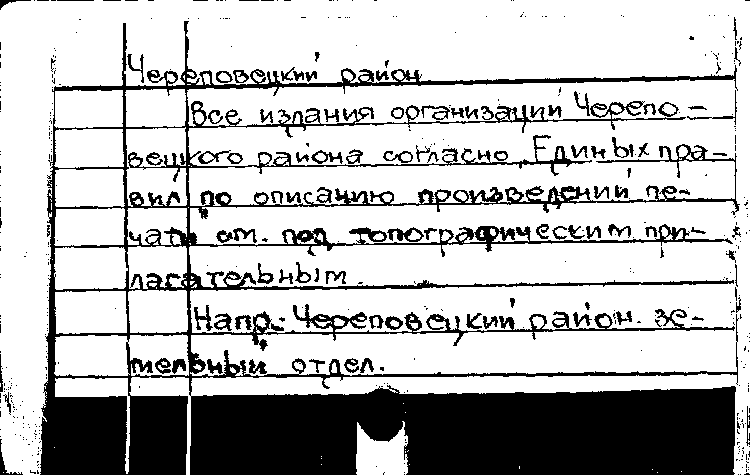 Череповецкий район
Все издания организаций Черепо-
вецкого района согласно „Единых пра-
вил по описанию произведений пе-
чати см. под топографическим при-
лагательным.
Напр.: Череповецкий район. зе-
мельный отдел.